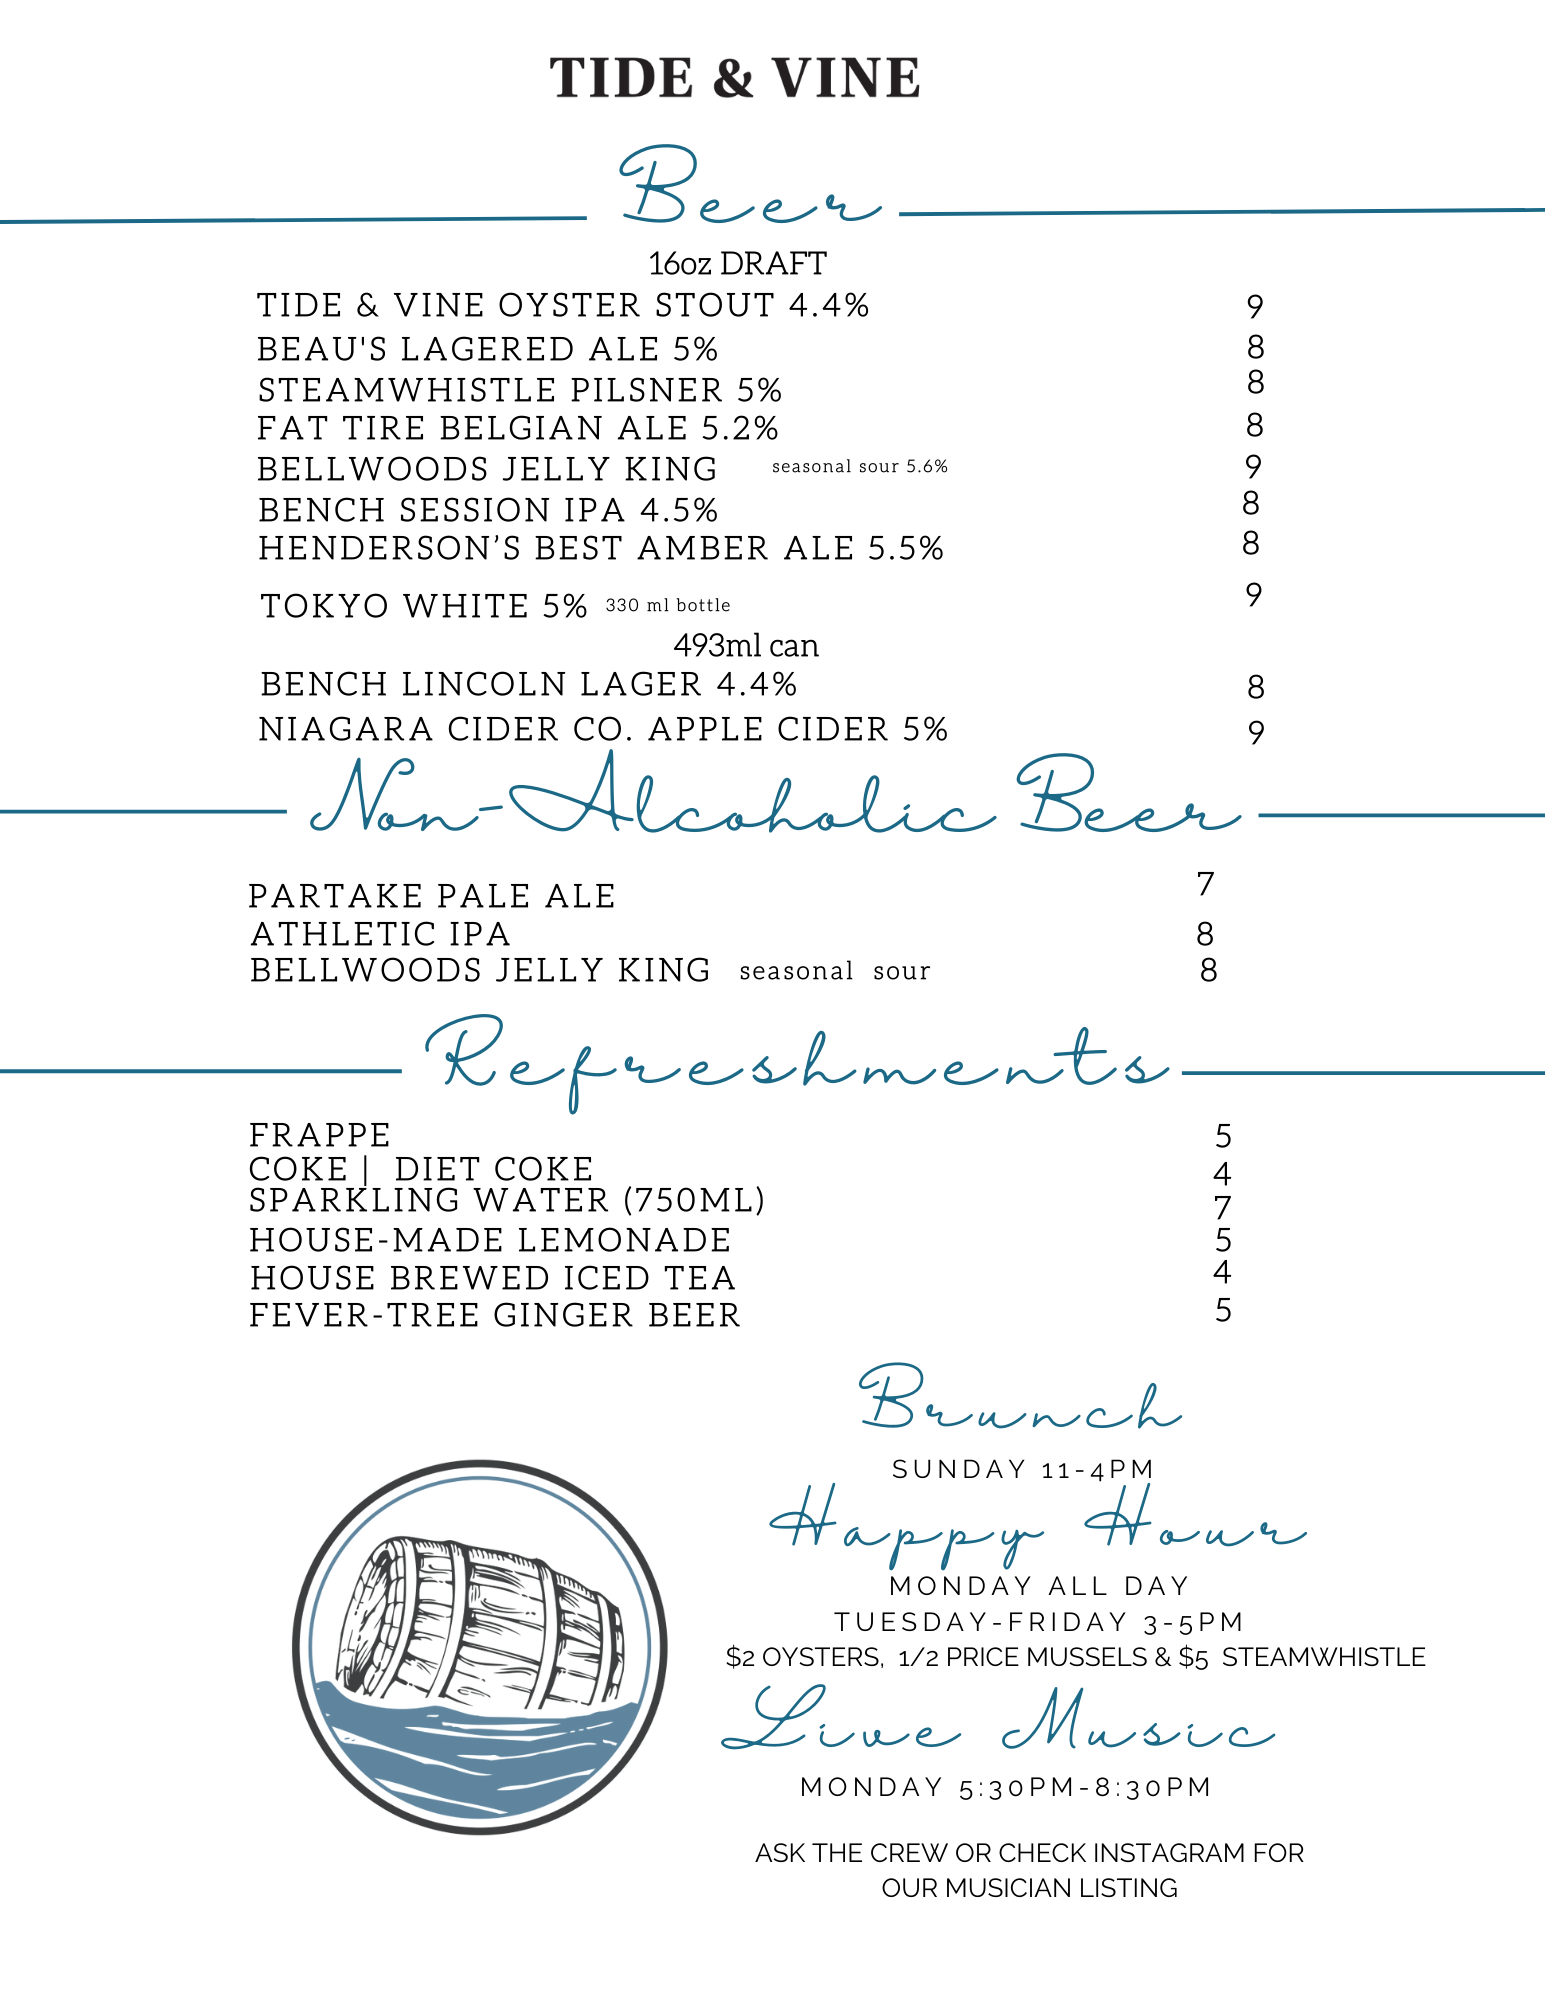 TIDE & VINE
Beer
16oz DRAFT
TIDE & VINE OYSTER STOUT 4.4% 9
BEAU'S LAGERED ALE 5% 8
STEAMWHISTLE PILSNER 5% 8
FAT TIRE BELGIAN ALE 5.2% 8
BELLWOODS JELLY KING seasonal sour 5.6% 9
BENCH SESSION IPA 4.5% 8
HENDERSON’S BEST AMBER ALE 5.5% 8
TOKYO WHITE 5% 330 ml bottle 9
493ml can
BENCH LINCOLN LAGER 4.4% 8
NIAGARA CIDER CO. APPLE CIDER 5% 9
Non-Alcoholic Beer
PARTAKE PALE ALE 7
ATHLETIC IPA 8
BELLWOODS JELLY KING seasonal sour 8
Refreshments
FRAPPE 5
COKE | DIET COKE 4
SPARKLING WATER (750ML) 7
HOUSE-MADE LEMONADE 5
HOUSE BREWED ICED TEA 4
FEVER-TREE GINGER BEER 5
Brunch
SUNDAY 11-4PM
Happy Hour
MONDAY ALL DAY
TUESDAY-FRIDAY 3-5PM
$2 OYSTERS, 1/2 PRICE MUSSELS & $5 STEAMWHISTLE
Live Music
MONDAY 5:30PM-8:30PM
ASK THE CREW OR CHECK INSTAGRAM FOR
OUR MUSICIAN LISTING